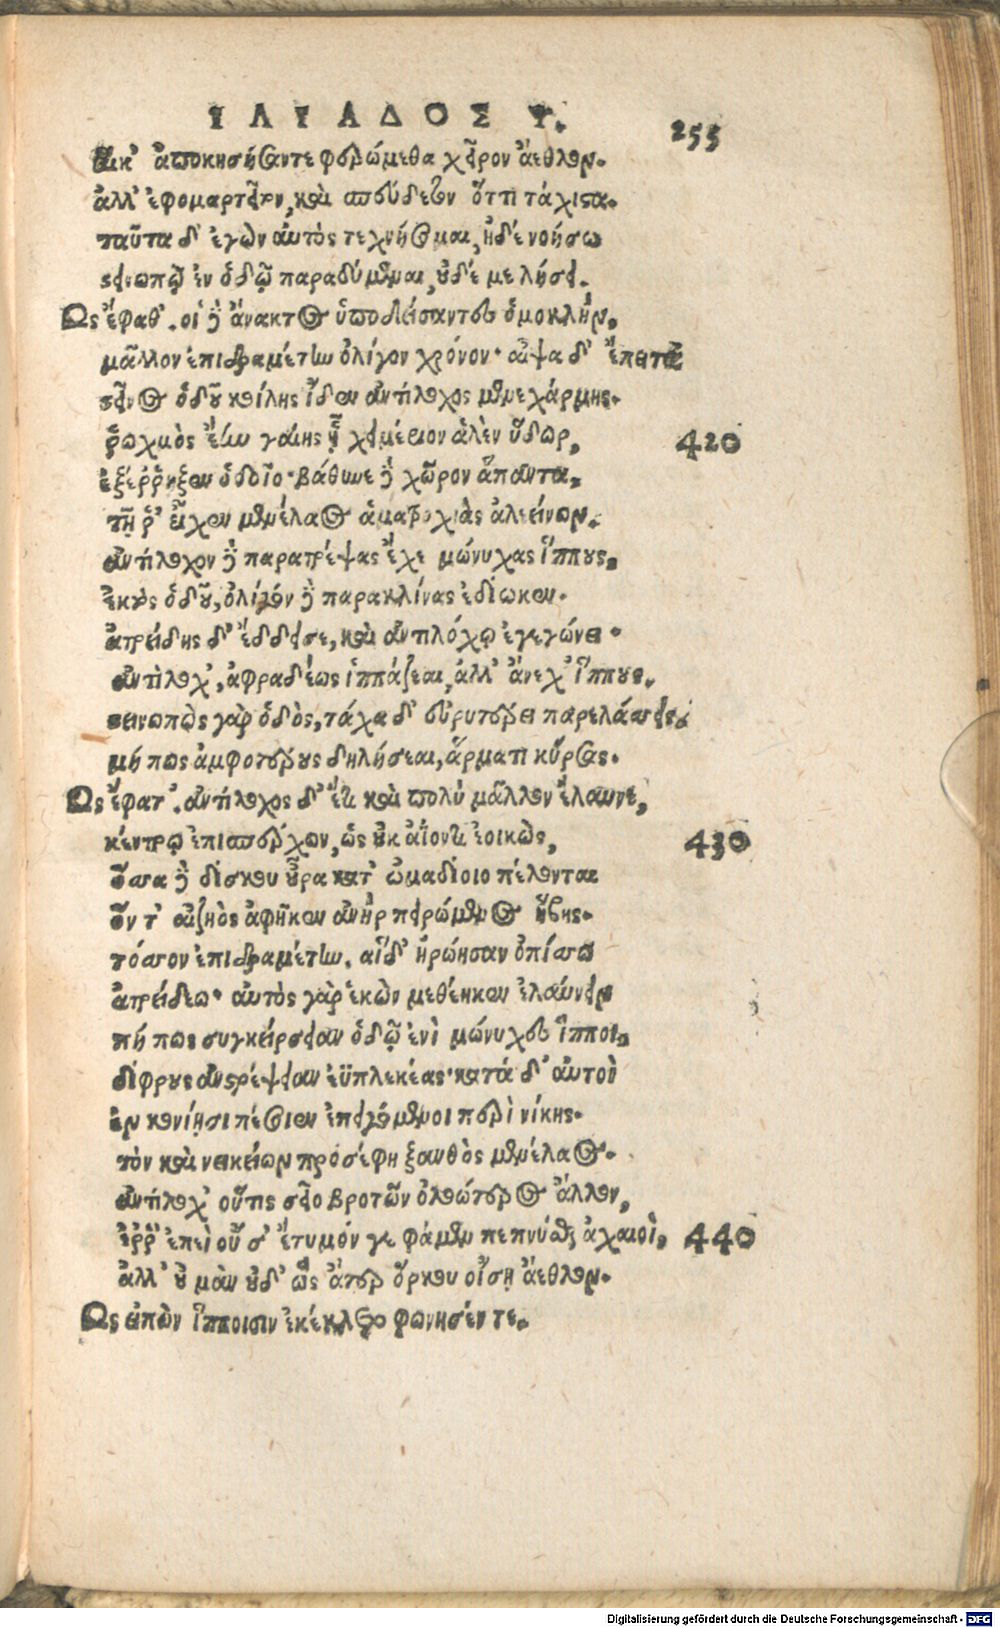 ΙΛΙΑΔΟΣ Ψ.
255
αἴκ' ἀποκηδήσαντε φερώμεθα χεῖρον ἄεθλον.
ἀλλ' ἐφομαρτεῖτον, καὶ σπεύδετον ὅττι τάχιστα.
ταῦτα δ' ἐγὼν αὐτὸς τεχνήσομαι, ἠδὲ νοήσω
στεινωπῷ ἐν ὁδῷ παραδύμεναι, οὐδέ με λήσει.
Ως ἔφαθ'. οἱ δὲ ἄνακτος ὑποδείσαντες ὁμοκλὴν,
μᾶλλον ἐπιδραμέτην ὀλίγον χρόνον· αἶψα δ' ἔπειτα
στεῖνος ὁδοῦ κοίλης ἴδεν ἀντίλοχος μενεχάρμης.
ῥωχμὸς ἔην γαίης ᾗ χειμέριον ἀλὲν ὕδωρ, 420
ἐξέῤῥηξεν ὁδοῖο· βάθυνε δὲ χῶρον ἅπαντα.
τῇ ῥ' εἶχεν μενέλαος ἁματροχιὰς ἀλεείνων.
ἀντίλοχος δὲ παρατρέψας ἔχε μώνυχας ἵππους,
ἐκτὸς ὁδοῦ, ὀλίγον δὲ παρακλίνας ἐδίωκεν.
ἀτρείδης δ' ἔδδεισε, καὶ ἀντιλόχῳ ἐγεγώνει·
ἀντίλοχ', ἀφραδέως ἱππάζεαι, ἀλλ' ἄνεχ' ἵππους.
στεινωπὸς γὰρ ὁδὸς, τάχα δ' εὐρυτέρῃ παρελάσσεις.
μή πως ἀμφοτέρους δηλήσεαι, ἅρματι κύρσας.
Ως ἔφατ'. ἀντίλοχος δ' ἔτι καὶ πολὺ μᾶλλον ἔλαυνε,
κέντρῳ ἐπισπέρχων, ὡς οὐκ ἀΐοντι ἐοικὼς, 430
ὅσσα δὲ δίσκου οὖρα κατ' ὠμαδίοιο πέλονται
ὅν τ' αἰζηὸς ἀφῆκεν ἀνὴρ πειρώμενος ἥβης.
τόσσον ἐπιδραμέτην. αἱ δ' ἠρώησαν ὀπίσσω
ἀτρείδεω· αὐτὸς γὰρ ἑκὼν μεθέηκεν ἐλαύνειν
μή πως συγκύρσειαν ὁδῷ ἐνὶ μώνυχες ἵπποι,
δίφρους ἀνστρέψειαν ἐϋπλεκέας· κατὰ δ' αὐτοὶ
ἐν κονίῃσι πέσωσιν ἐπειγόμενοι περὶ νίκης.
τὸν καὶ νεικείων προσέφη ξανθὸς μενέλαος.
ἀντίλοχ' οὔτις σεῖο βροτῶν ὀλοώτερος ἄλλος,
ἔῤῥ' ἐπεὶ οὔ σ' ἔτυμόν γε φάμεν πεπνύσθαι ἀχαιοὶ, 440
ἀλλ' οὐ μὰν οὐδ' ὣς ἄτερ ὅρκου οἴσῃ ἄεθλον.
Ως εἰπὼν ἵπποισιν ἐκέκλετο φώνησέν τε.
Digitalisierung gefördert durch die Deutsche Forschungsgemeinschaft - DFG